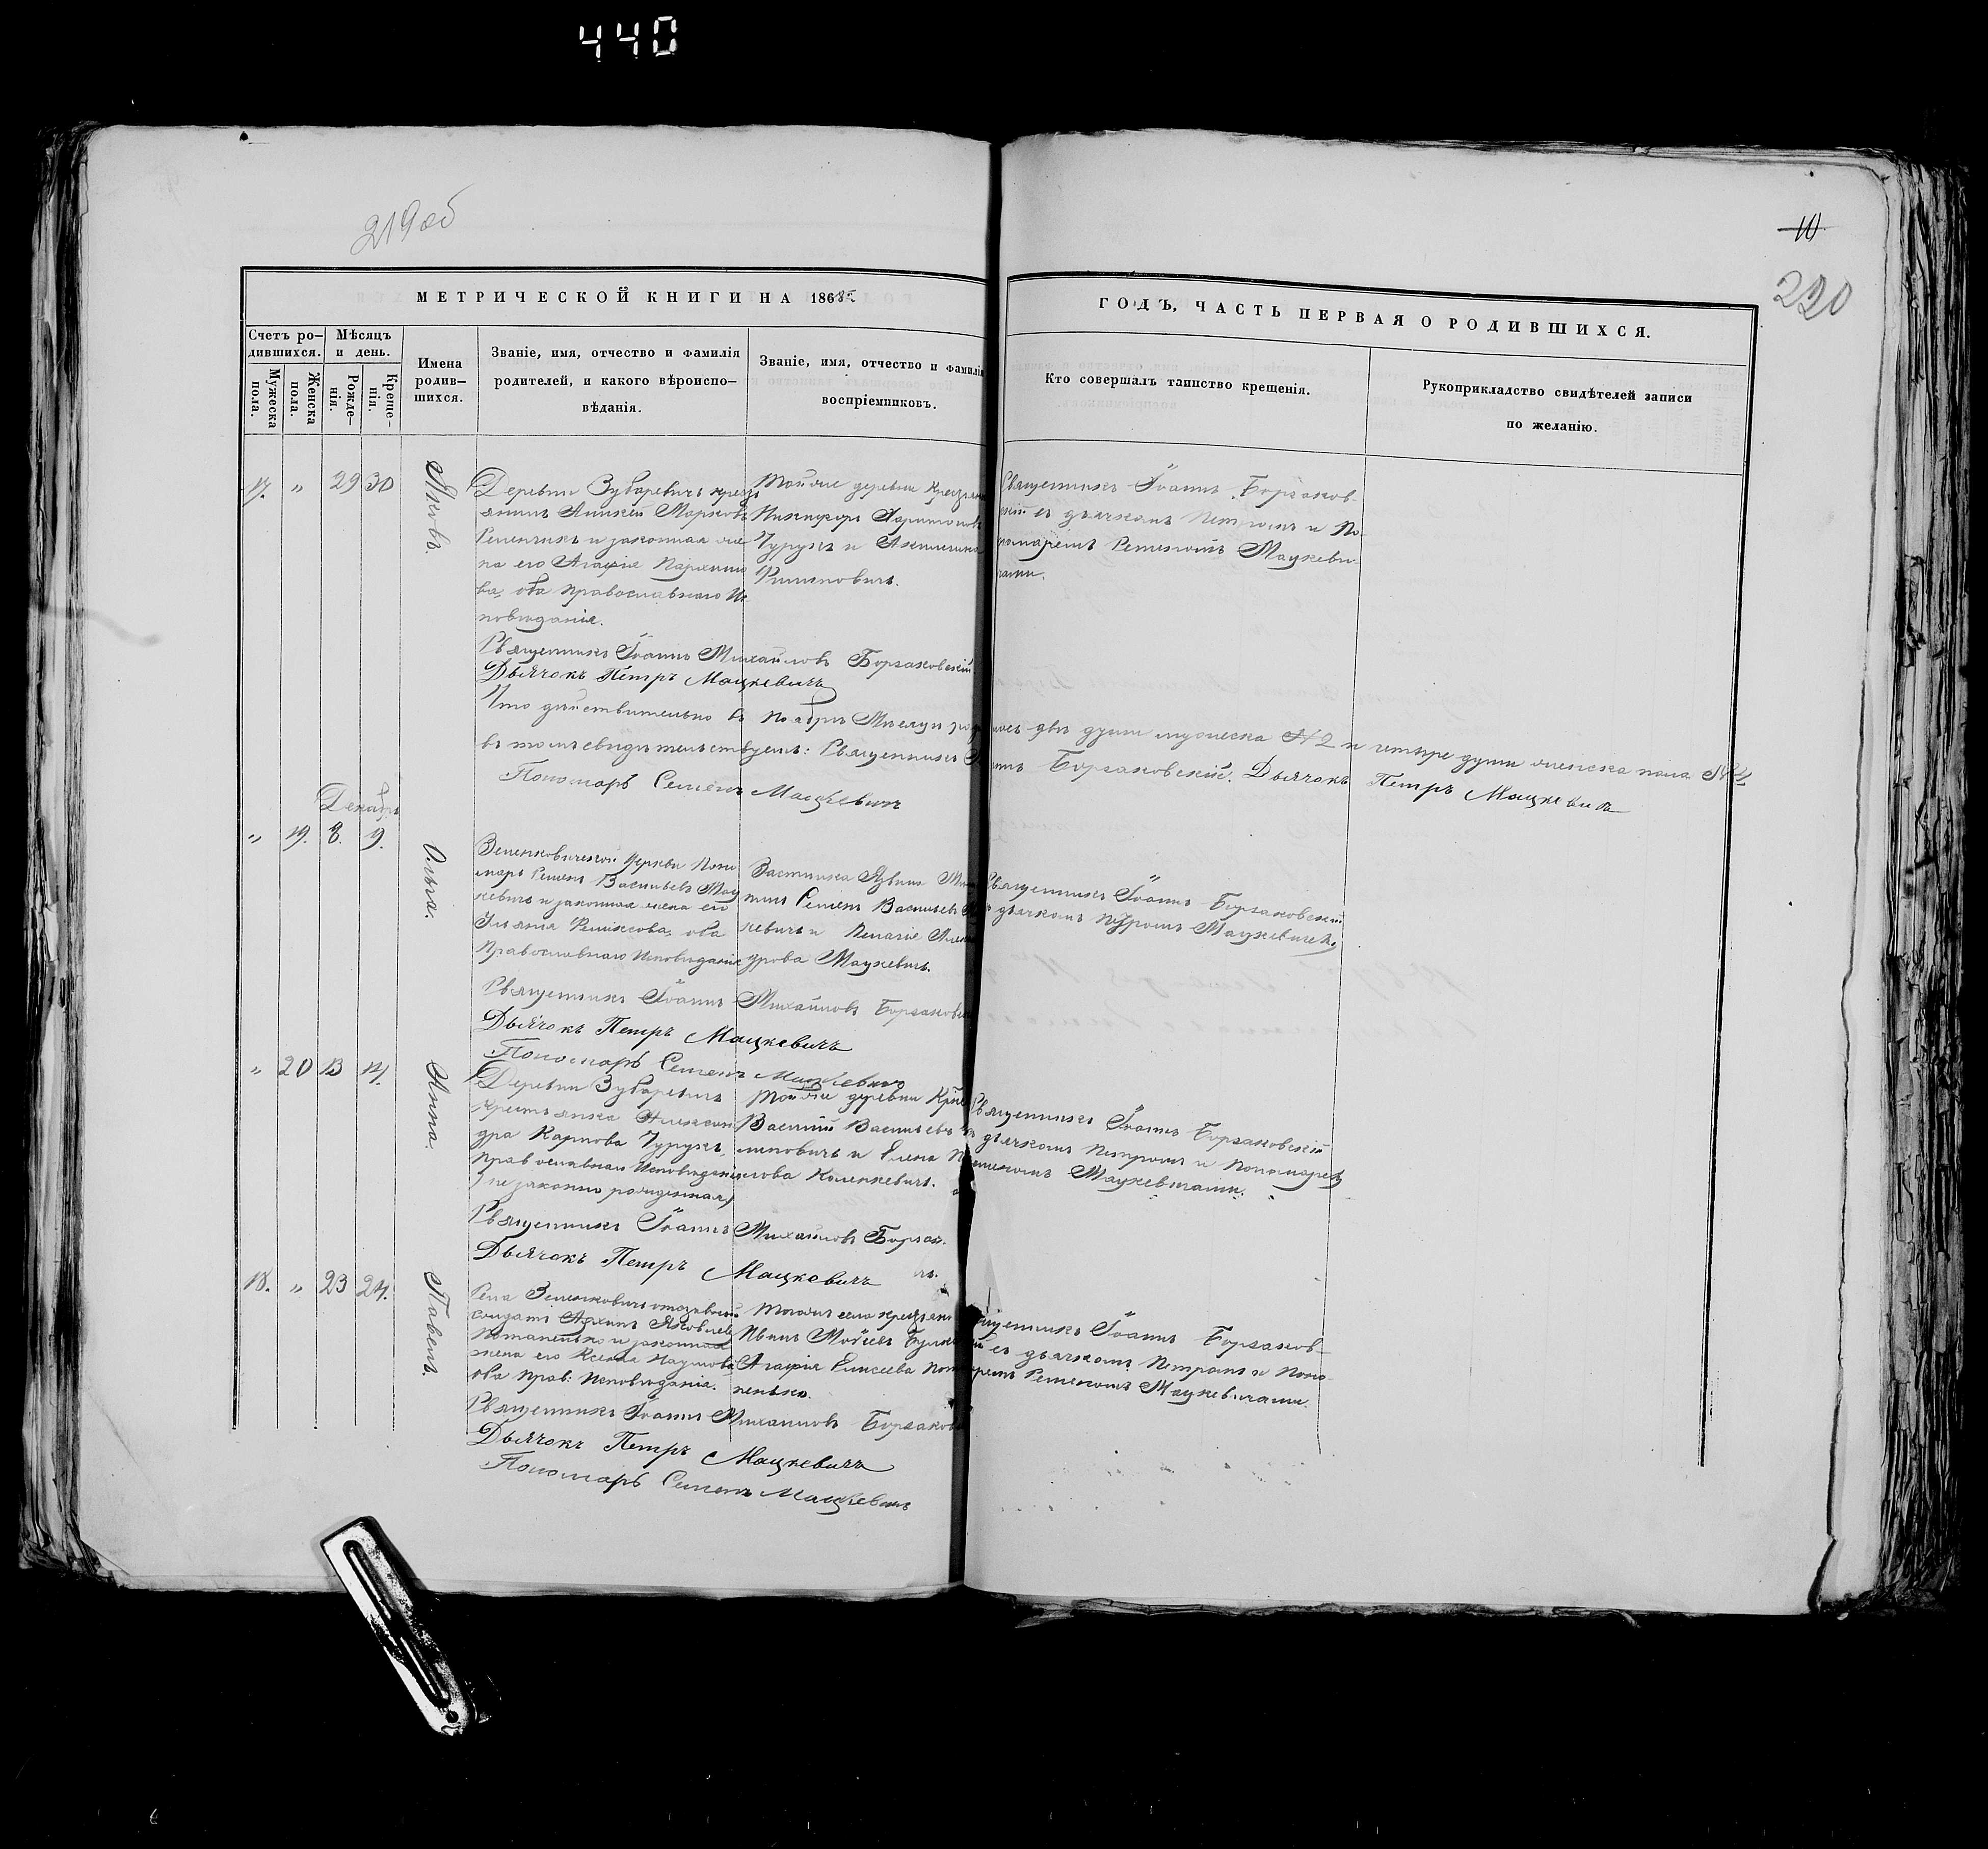 440
219 об
10
220
МЕТРИЧЕСКОЙ КНИГИ НА 1868
ГОДЪ, ЧАСТЬ ПЕРВАЯ О РОДИВШИХСЯ.
Счетъ ро-
дившихся.
Мужеска
пола.
Женска
пола.
Мѣсяцъ
и день.
Рожде-
нія.
Креще-
нія.
Имена
родив-
шихся.
Званіе, имя, отчество и фамилія
родителей, и какого вѣроиспо-
вѣданія.
Званіе, имя, отчество и фамилія
воспріемниковъ.
Кто совершалъ таинство крещенія.
Рукоприкладство свидѣтелей записи
по желанію.
17. " 29 30
Яковъ.
Деревни Зубаревичъ кресть
янинъ Марковъ
Семенчикъ и законная же
на его Агафія
ва, оба православнаго Ис
повѣданія.
Тойже деревни
Никифоръ Харитоновъ
Чурукъ и
Священникъ Іоаннъ Борзаков-
скій съ дьячкомъ Петромъ и По
номаремъ Семеномъ Мацкеви
чами.
Священникъ Іоаннъ Михайловъ Борзаковскій
Дьячокъ Петръ Мацкевичъ
Что дѣйствительно въ Ноябрѣ Мѣсяцѣ две души мужеска № 2 и четыре души женска пола № 4
въ томъ свидѣтельствуемъ: Священникъ Борзаковскій. Дьячокъ Петръ Мацкевичъ
Пономарь Семенъ Мацкевичъ
Декабрь
" 19. 8. 9.
Ольга.
Зеленковичской Церкви Поно
марь Семенъ Васильевъ Мац
кевичъ и законная жена его
оба
Православнаго Исповѣданія
Семенъ Васильевъ
кевичъ и Пелагія
дрова Мацкевичъ.
Священникъ Іоаннъ Борзаковскій
съ дьячкомъ Петромъ Мацкевичемъ
Священникъ Іоаннъ Михайловъ
Дьячокъ Петръ Мацкевичъ
Пономарь Семенъ Мацкевичъ
" 20 13 14.
Анна.
Деревни Зубаревичъ
крестьянка Алексан
дра Карпова Чурукъ,
Православнаго Исповѣданія
(незаконно рожденная)
Тойже деревни
Василій Васильевъ
и Елена
Священникъ Іоаннъ Борзаковскій
дьячкомъ Петромъ и Пономаремъ
Семеномъ Мацкевичами.
Священникъ Іоаннъ Михайловъ
Дьячокъ Петръ Мацкевичъ
18. " 23 24.
Павелъ.
Села Зеленковичъ
солдатъ Яковлевъ
Потапенко и законная
жена его Ксенія Наумова
оба Прав: Исповѣданія.
Тогоже села
Агафія Елисеева
пенько.
Священникъ Іоаннъ Борзаков-
съ дьячкомъ Петромъ и Поно-
маремъ Семеномъ Мацкевичами.
Священникъ Іоаннъ Михайловъ
Дьячокъ Петръ Мацкевичъ
Пономарь Семенъ Мацкевичъ